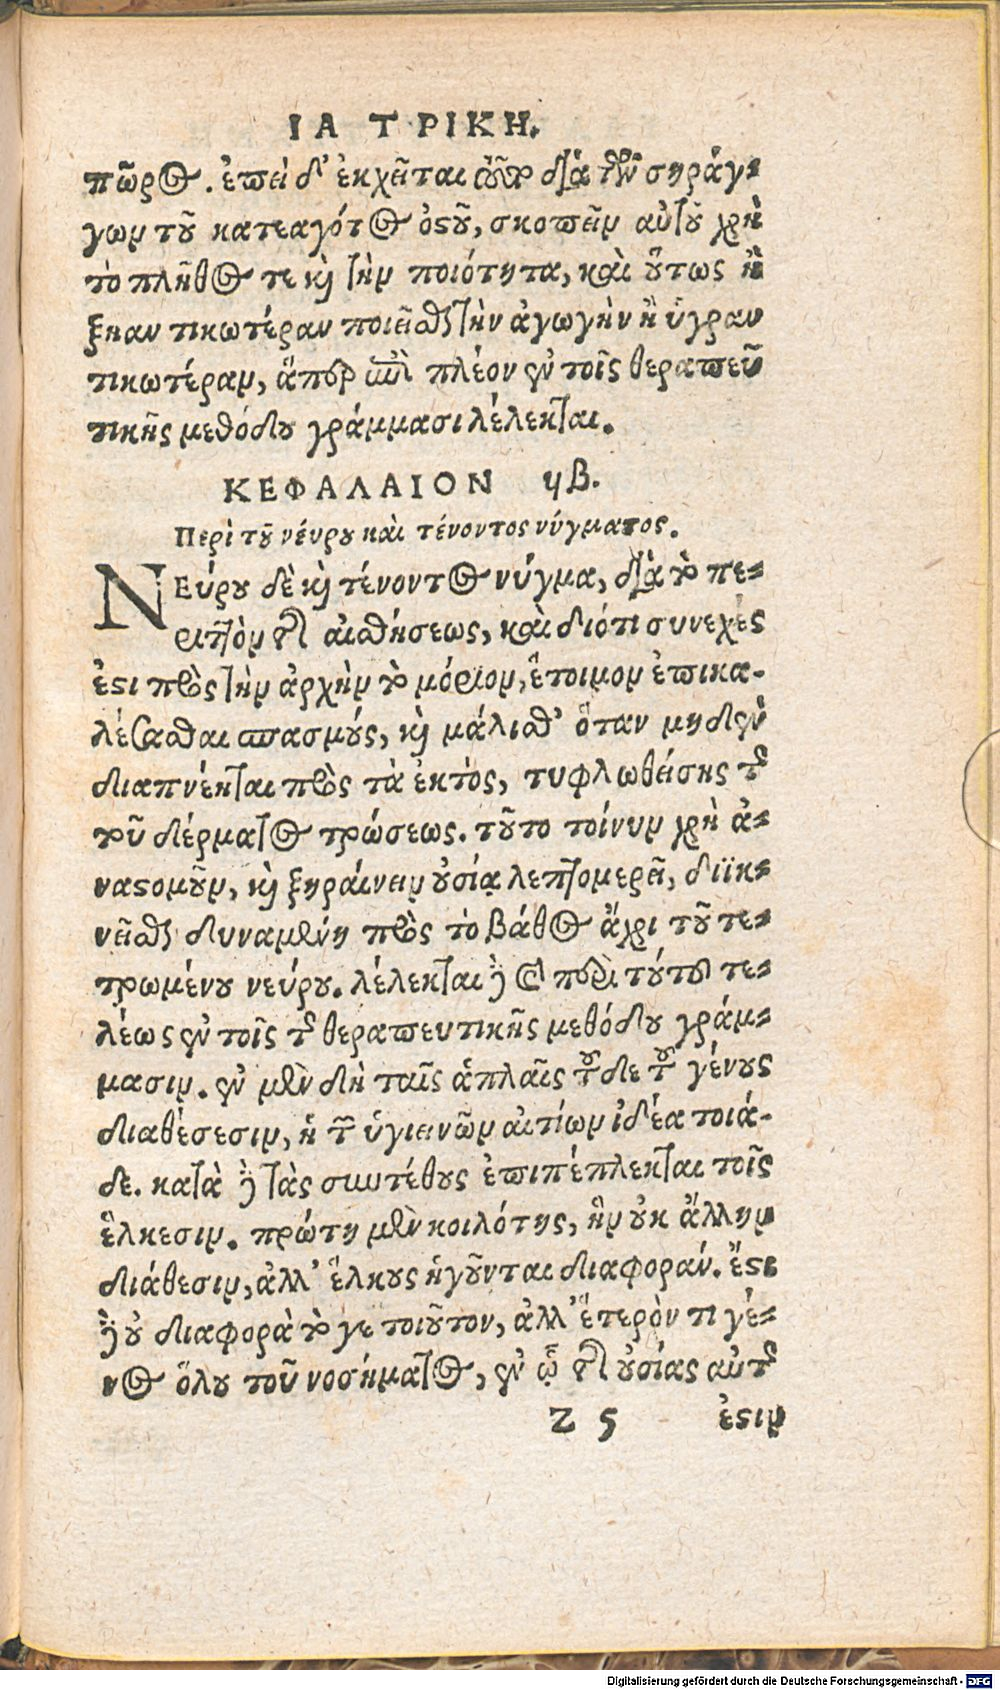 ΙΑΤΡΙΚΗ.
πῶρος. ἐπεὶ δ' ἐκχεῖται οὖν διὰ τῶν σηράγ-
γων τοῦ κατεαγότος ὀστοῦ, σκοπεῖν αὐτοῦ χρὴ
τὸ πλῆθός τε καὶ τὴν ποιότητα, καὶ οὕτως ἢ
ξηαντικωτέραν ποιεῖσθαι τὴν ἀγωγὴν ἢ ὑγραν
τικωτέραν, ἅπερ ἐπὶ πλέον ἐν τοῖς θεραπευ
τικῆς μεθόδου γράμμασι λέλεκται.
ΚΕΦΑΛΑΙΟΝ ϟβ.
Περὶ τοῦ νέυρου καὶ τένοντος νύγματος.
ΝΕύρου δὲ καὶ τένοντος νύγμα, διὰ τὸ πε-
ριττὸν τῆς αἰσθήσεως, καὶ διότι συνεχές
ἐστι πρὸς τὴν ἀρχὴν τὸ μόριον, ἕτοιμον ἐπικα-
λέσασθαι σπασμούς, καὶ μάλισθ' ὅταν μηδὲν
διαπνέηται πρὸς τὰ ἐκτὸς, τυφλωθείσης τῆς
τοῦ δέρματος τρώσεως. τοῦτο τοίνυν χρὴ ἀ-
ναστομοῦν, καὶ ξηραίνειν οὐσίᾳ λεπτομερεῖ, διϊκ-
νεῖσθαι δυναμένῃ πρὸς τὸ βάθος ἄχρι τοῦ τε-
τρωμένου νεύρου. λέλεκται δὲ καὶ περὶ τούτου τε-
λέως ἐν τοῖς τῆς θεραπευτικῆς μεθόδου γράμ-
μασιν. ἐν μὲν δὴ ταῖς ἁπλαῖς τοῦδε τοῦ γένους
διαθέσεσιν, ἡ τῶν ὑγιεινῶν αἰτίων ἰδέα τοιά-
δε. κατὰ δὲ τὰς συνθέτους ἐπιπέπλεκται τοῖς
ἕλκεσιν. πρώτη μὲν κοιλότης, ἣν οὐκ ἄλλην
διάθεσιν, ἀλλ' ἕλκους ἡγοῦνται διαφοράν. ἔστι
δὲ οὐ διαφορὰ τό γε τοιοῦτον, ἀλλ' ἕτερόν τι γέ-
νος ὅλου τοῦ νοσήματος, ἐν ᾧ τῆς οὐσίας αὐτῆς
Ζ 5 ἐστιν
Digitalisierung gefördert durch die Deutsche Forschungsgemeinschaft - DFG